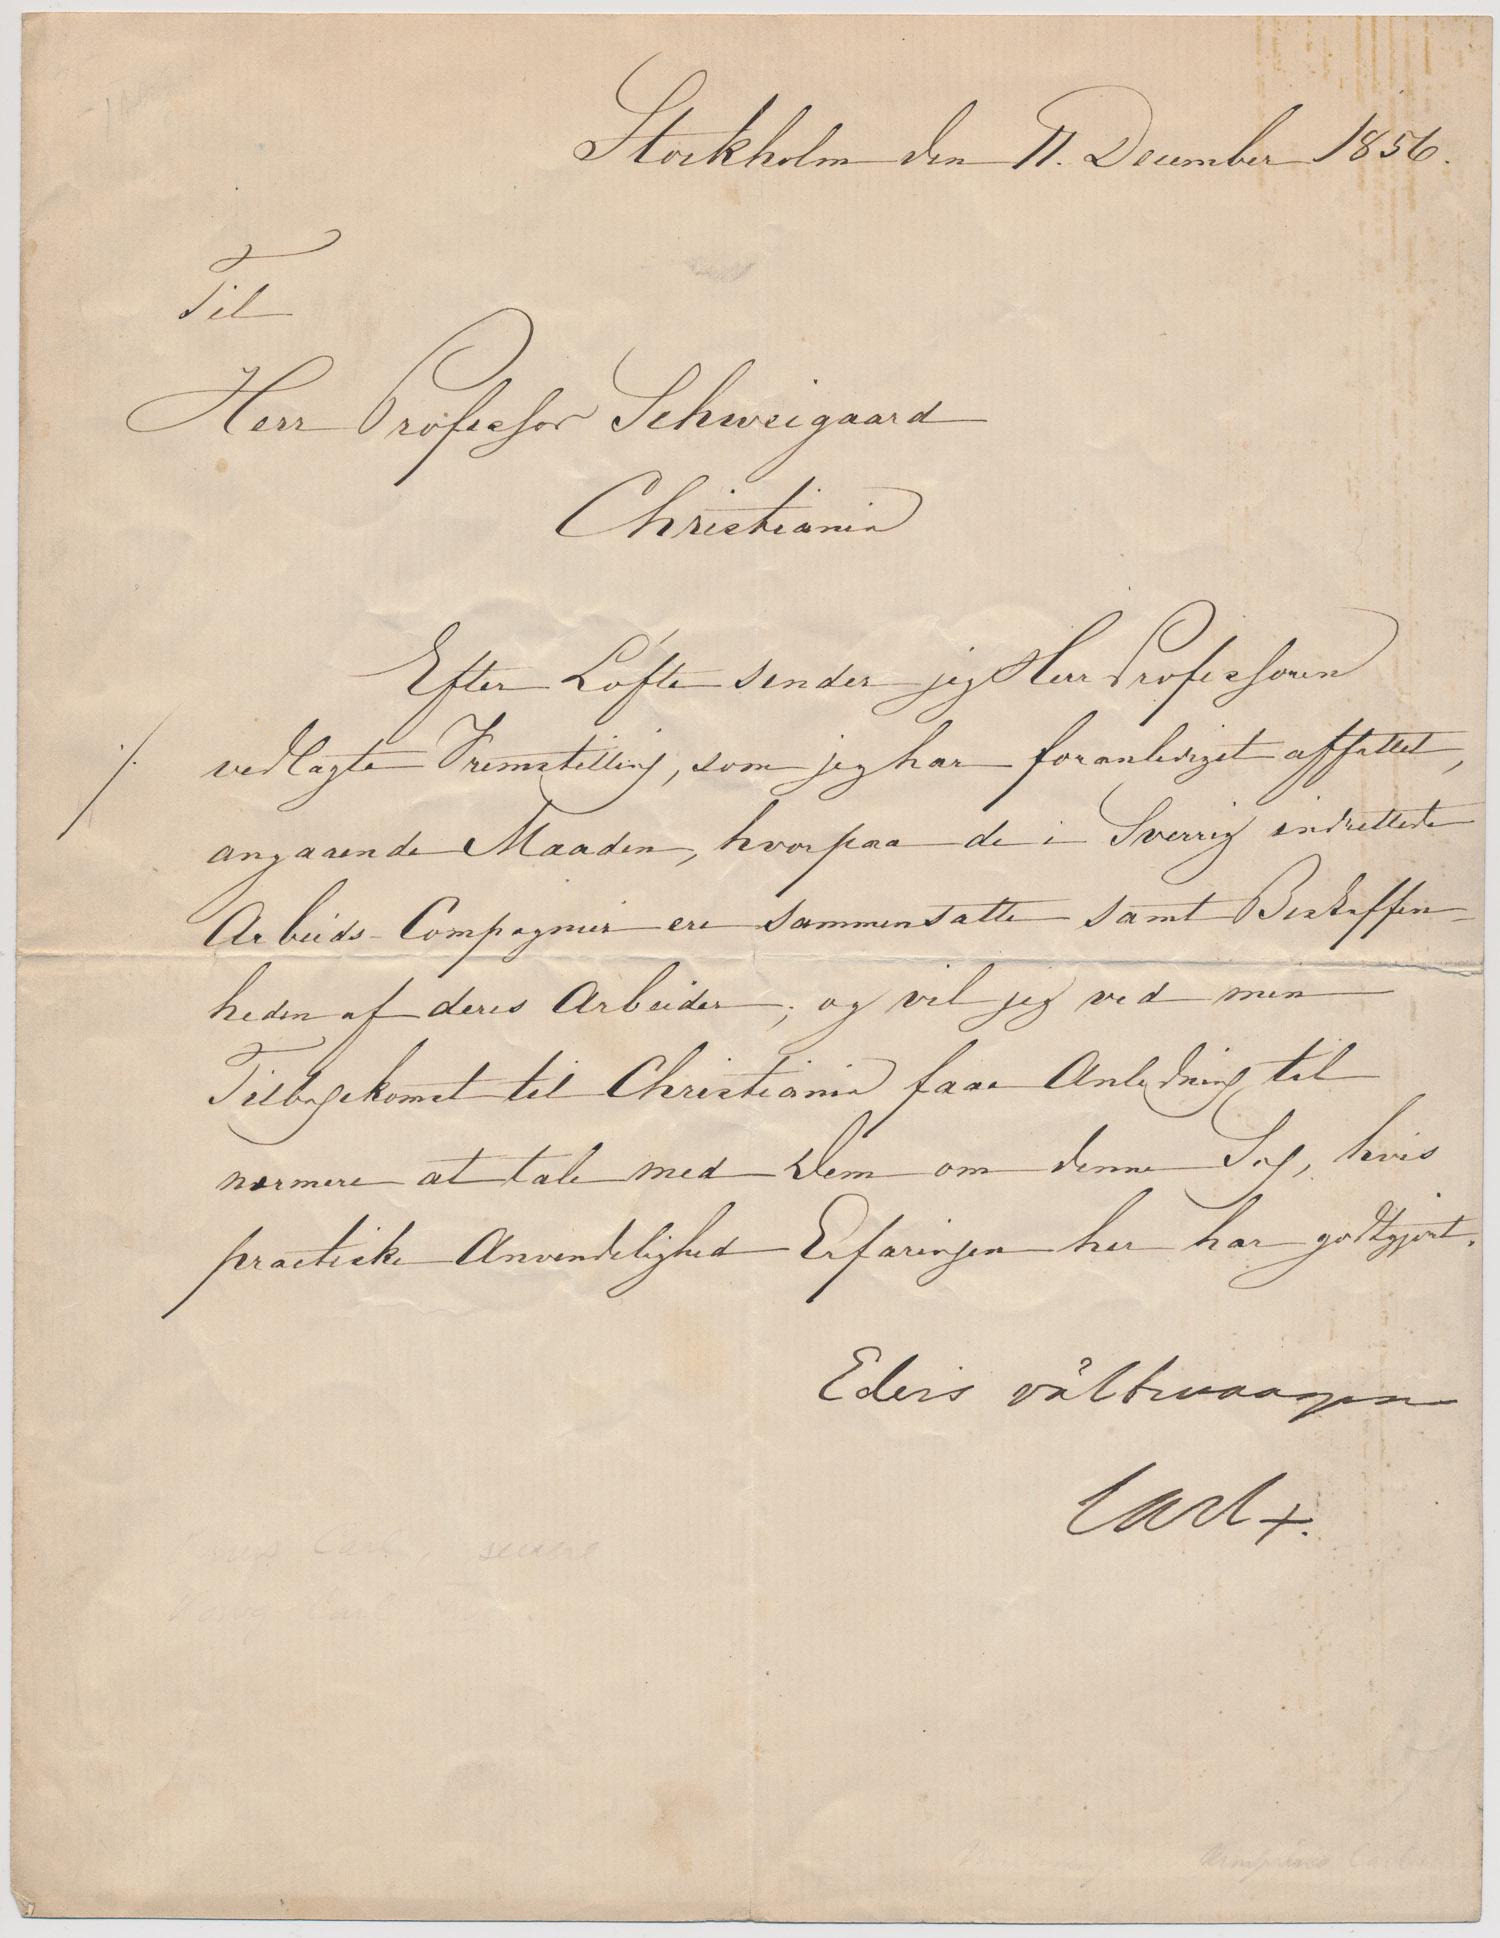 Stockholm den 11. December 1856.
Til
Herr Professor Schweigaard
Christiania
Efter Löfte sender jeg Herr Professoren
./. vedlagte Fremstilling, som jeg har foranlediget affattet,
angaaende Maaden, hvorpaa de i Sverrig indrettede
Arbeids-Compagnier ere sammensatte samt Beskaffen-
heden af deres Arbeider; og vil jeg ved min
Tilbagekomst til Christiania faae Anledning til
nærmere at tale med Dem om denne Sag, hvis
practiske Anvendelighed Erfaringen her har godtgjort.
Eders vältvaagen
Carl +.
Carl, senere
Kong Carl
Kronprins Carl